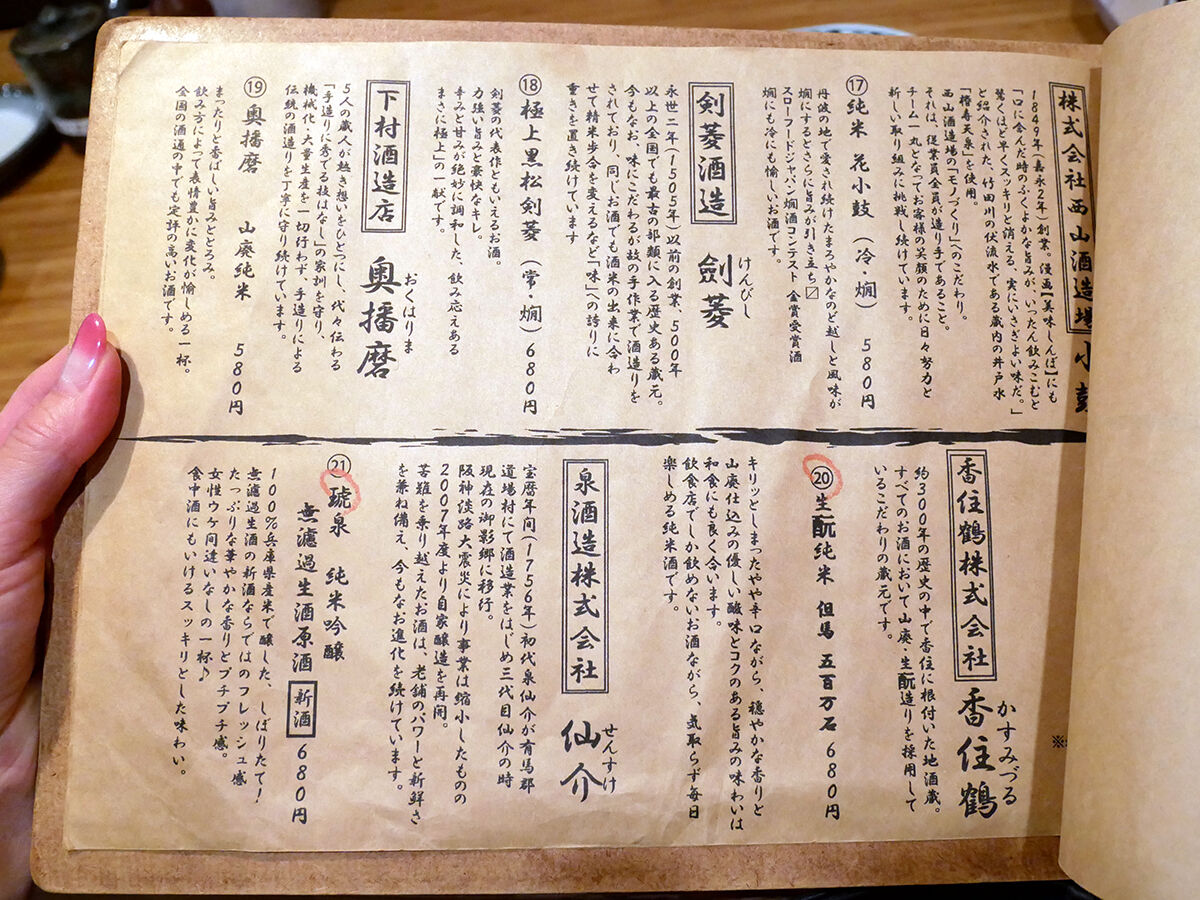 株式会社西山酒造場
小鼓
1849年(嘉永2年)創業。漫画【美味しんぼ】にも
「口に含んだ時のふくよかな旨みが、いったん飲みこむと
驚くほど早くスッキリと消える、実にいさぎよい味だ。」
と紹介された、竹田川の伏流水である蔵内の井戸水
「椿寿天泉」を使用。
西山酒造場の「モノづくり」へのこだわり。
それは、従業員全員が造り手であること。
チーム一丸となってお客様の笑顔のために日々努力と
新しい取り組みに挑戦し続けています。
⑰純米 花小鼓 (冷・燗) 580円
丹波の地で愛され続けたまろやかなのど越しと風味が
燗にするとさらに旨みが引き立ち〼
スローフードジャパン燗酒コンテスト 金賞受賞酒
燗にも冷にも愉しいお酒です。
剣菱酒造
けんびし
劍菱
永世二年(1505年)以前の創業、500年
以上の全国でも最古の部類に入る歴史ある蔵元。
今もなお、味にこだわるが故の手作業で酒造りを
されており、同じお酒でも酒米の出来に合わ
せて精米歩合を変えるなど「味」への誇りに
重きを置き続けています
⑱極上黒松剣菱 (常・燗) 680円
剣菱の代表作ともいえるお酒。
力強い旨みと豪快なキレ。
辛みと甘みが絶妙に調和した、飲み応えある
まさに極上」の一献です。
下村酒造店
おくはりま
奥播磨
5人の蔵人が熱き想いをひとつにし、代々伝わる
「手造りに秀でる技はなし」の家訓を守り、
機械化・大量生産を一切行わず、手造りによる
伝統の酒造りを丁寧に守り続けています。
⑲奥播磨 山廃純米 580円
まったりと香ばしい旨みととろみ。
飲み方によって表情豊かに変化が愉しめる一杯。
全国の酒通の中でも定評の高いお酒です。
香住鶴株式会社
かすみづる
香住鶴
約300年の歴史の中で香住に根付いた地酒蔵。
すべてのお酒において山廃・生酛造りを採用して
いるこだわりの蔵元です。
※
⑳生酛純米 但馬 五百万石 680円
キリッとしまったやや辛口ながら、穏やかな香りと
山廃仕込みの優しい酸味とコクのある旨みの味わいは
和食にも良く合います。
飲食店でしか飲めないお酒ながら、気取らず毎日
楽しめる純米酒です。
泉酒造株式会社
せんすけ
仙介
宝暦年間(1756年)初代泉仙介が有馬郡
道場村にて酒造業をはじめ三代目仙介の時
現在の御影郷に移圩。
阪神淡路大震災により事業は縮小したものの
2007年度より自家醸造を再開。
苦難を乗り越えたお酒は、老舗のパワーと新鮮さ
を兼ね備え、今もなお進化を続けています。
㉑琥泉 純米吟醸
無濾過生酒原酒 新酒 680円
100%兵庫県産米で醸した、しぼりたて!
無濾過生酒の新酒ならではのフレッシュ感
たっぷりな華やかな香りとプチプチ感。
女性ウケ間違いなしの一杯♪
食中酒にもいけるスッキリとした味わい。